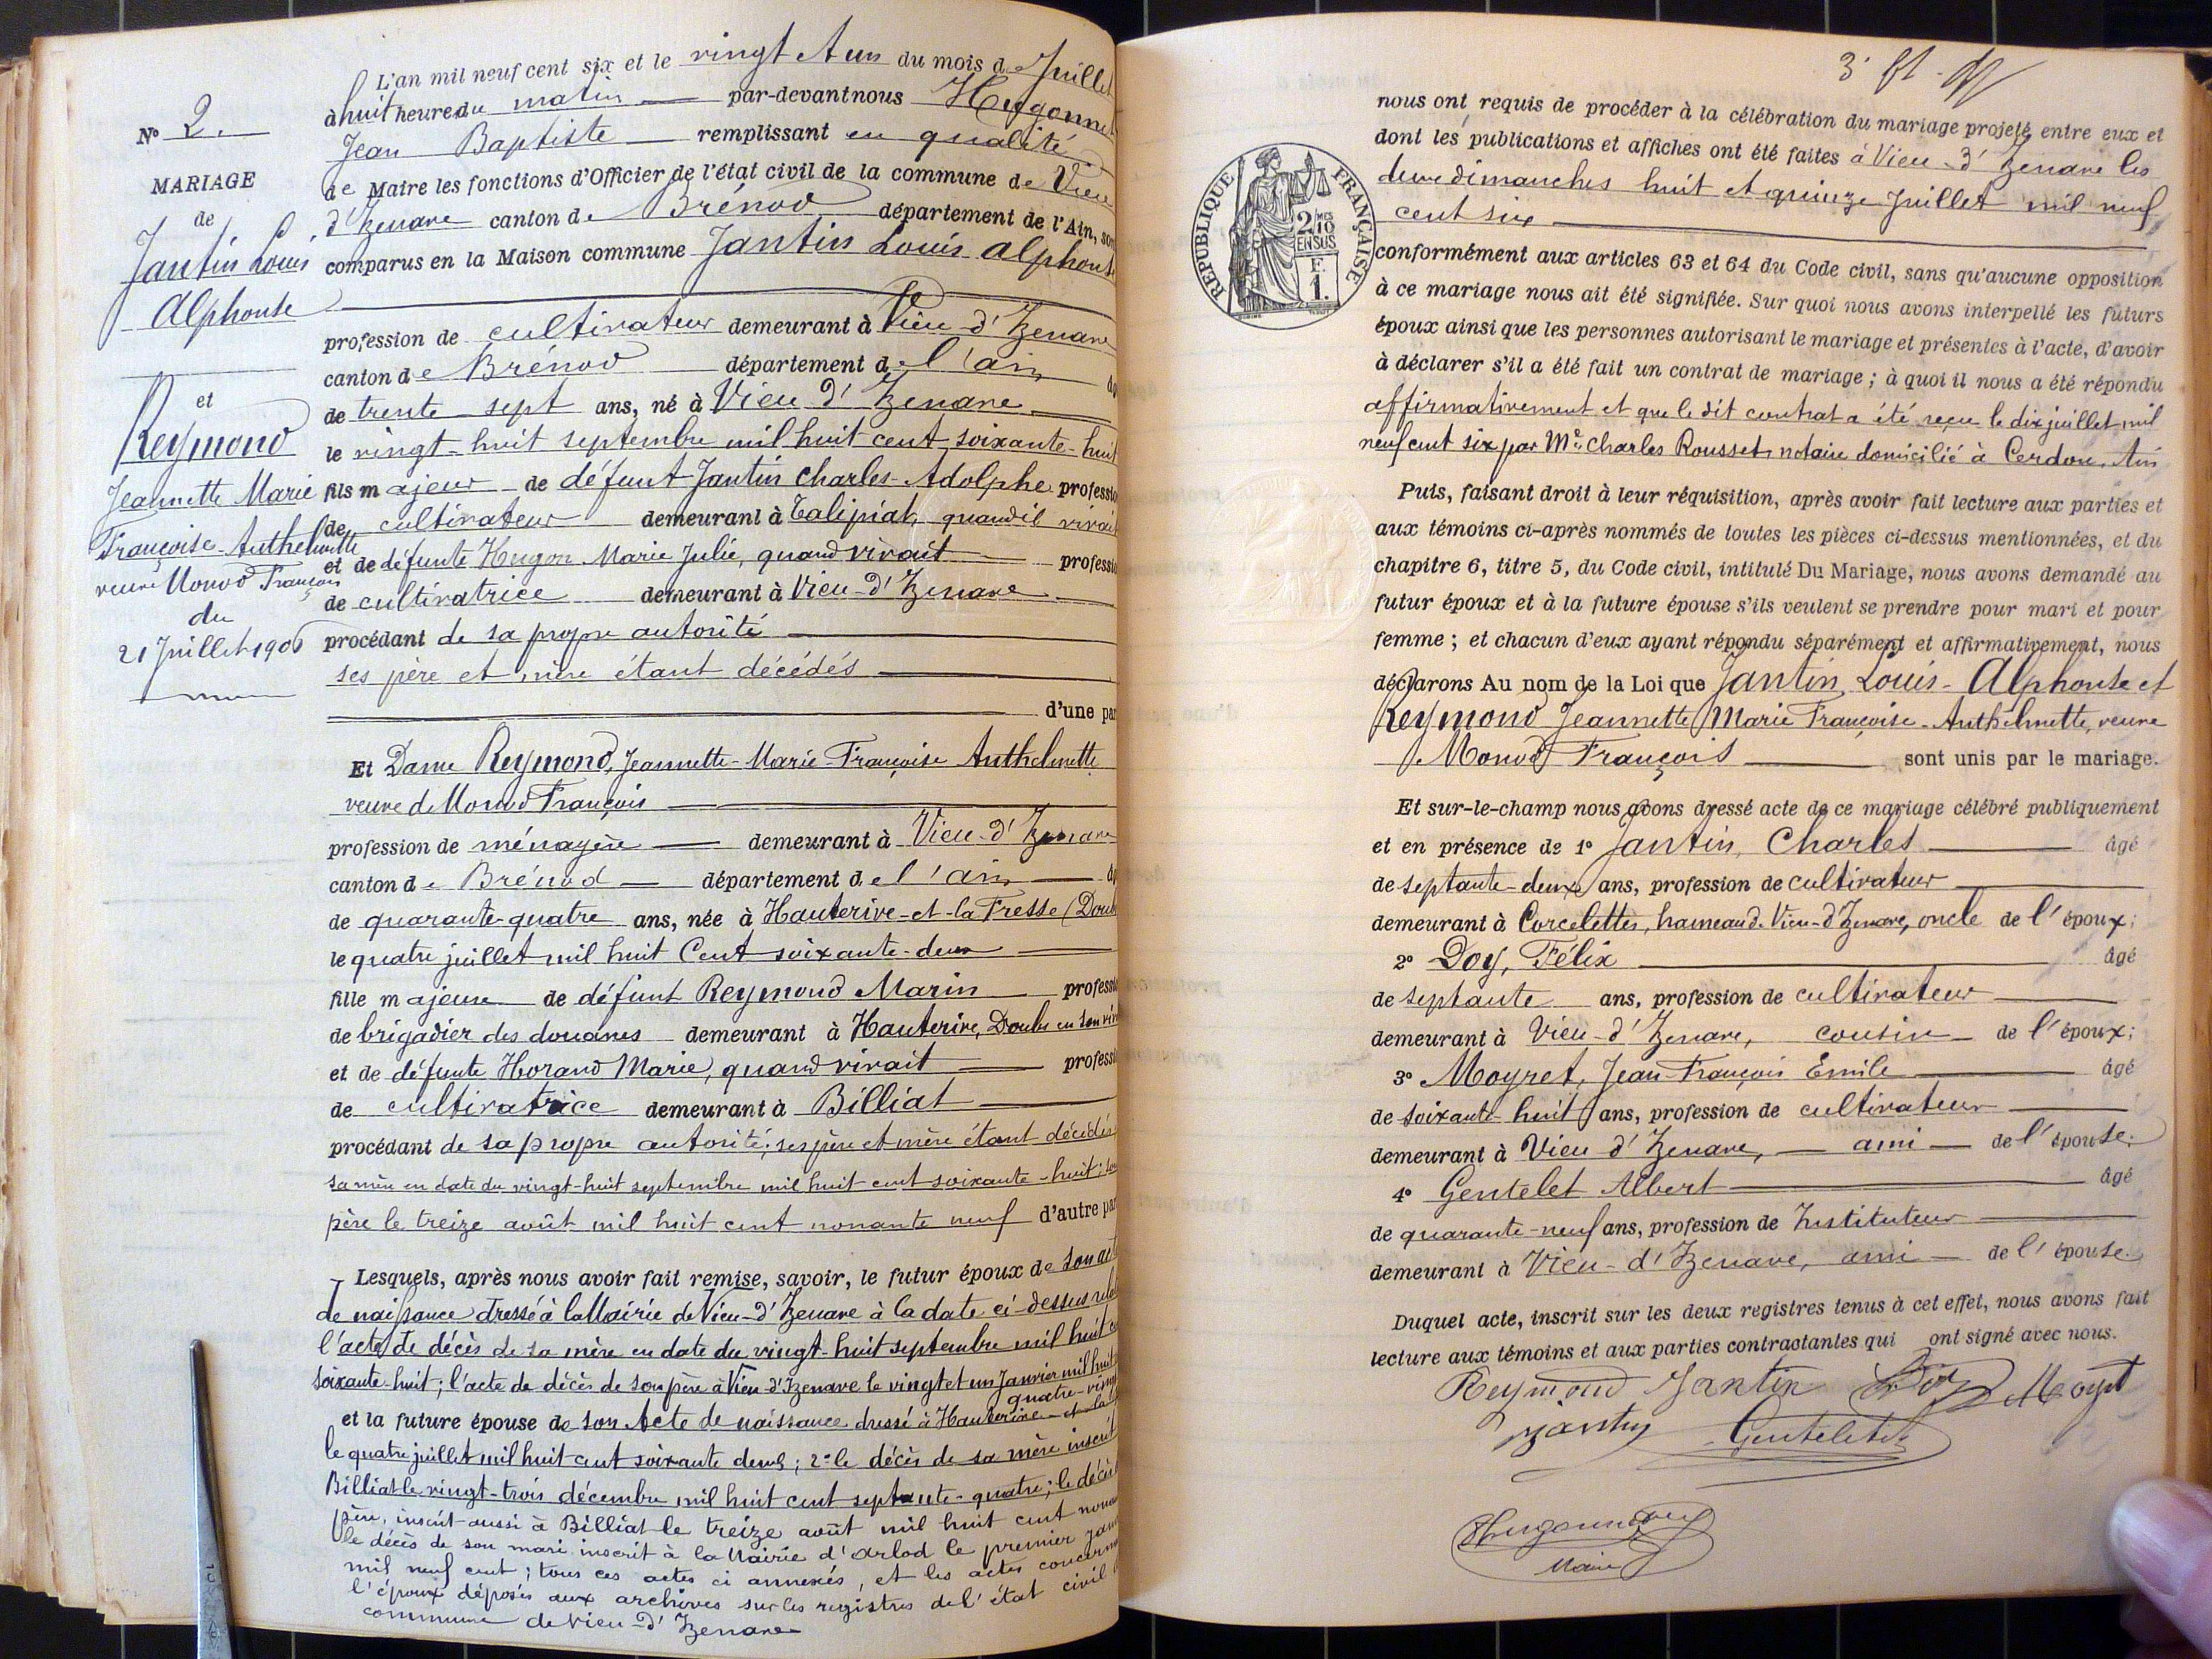 L'an mil neuf cent six et le vingt et un du mois de Juillet
à huit heure du matin par-devant nous Hugonnet
Jean Baptiste remplissant en qualité
de Maire les fonctions d'Officier de l'état civil de la commune de Vieu
d'Izenave canton de Brénod département de l'Ain, son
comparus en la Maison commune Jantin Louis Alphonse
profession de cultivateur demeurant à Vieu d'Izenave
canton de Brénod département de l'Ain
de trente sept ans, né à Vieu d'Izenave
le vingt-huit septembre mil huit cent soixante-huit
fils majeur de défunt Jantin Charles-Adolphe professio
de cultivateur demeurant à Talipiat, quand il vivait
et de défunte Hugon Marie Julie, quand vivait professio
de cultivatrice demeurant à Vieu-d'Izenave
procédant de sa propre autorité
ses père et mère étant décédés
d'une par
Et Dame Reymond, Jeannette-Marie-Françoise Anthelmette
veuve de Monod François
profession de ménagère demeurant à Vieu-d'Izenave
canton de Brénod département de l'Ain
de quarante-quatre ans, née à Hauterive-et-la Fresse (Doubs
le quatre juillet mil huit Cent soixante-deux
fille majeure de défunt Reymond Marin professio
de brigadier des douanes demeurant à Hauterive, Doubs en son viv
et de défunte Horand Marie, quand vivait professi
de cultivatrice demeurant à Billiat
procédant de sa propre autorité; ses père et mère étant décédés
sa mère en date du vingt-huit septembre mil huit cent soixante-huit; son
père le treize août mil huit cent nonante neuf d'autre par
Lesquels, après nous avoir fait remise, savoir, le futur époux de son act
de naissance dressé à la Mairie de Vieu-d'Izenave à la date ci-dessus
l'acte de décès de sa mère en date du vingt-huit septembre mil huit ce
soixante-huit; l'acte de décès de son père à Vieu-d'Izenave le vingt et un Janvier mil huit
quatre-vingt
et la future épouse de son Acte de naissance dressé à Hauterive-et-la
le quatre juillet mil huit cent soixante deux; 2° le décès de sa mère inscrit
Billiat le vingt-trois décembre mil huit cent septante-quatre; le décès
père, inscrit aussi à Billiat le treize août mil huit cent nonan
le décès de son mari inscrit à la Mairie d'Arlod le premier jan
mil neuf cent; tous ces actes ci annexés, et les actes concernant
l'époux déposés aux archives sur les registres de l'état civil
commune de Vieu-d'Izenave
N° 2.
MARIAGE
de
Jantin Louis
Alphonse
et
Reymond
Jeannette Marie
Françoise-Anthelmette
veuve Monod François
du
21 Juillet 1906
nous ont requis de procéder à la célébration du mariage projeté entre eux et
dont les publications et affiches ont été faites à Vieu-d'Izenave les
deux dimanches huit et quinze Juillet mil neuf
cent six
RÉPUBLIQUE FRANÇAISE
2/10 MES
EN SUS
F.
1.
conformément aux articles 63 et 64 du Code civil, sans qu'aucune opposition
à ce mariage nous ait été signifiée. Sur quoi nous avons interpellé les futurs
époux ainsi que les personnes autorisant le mariage et présentes à l'acte, d'avoir
à déclarer s'il a été fait un contrat de mariage; à quoi il nous a été répondu
affirmativement et que le dit contrat a été reçu le dix juillet mil
neuf cent six par Me Charles Rousset notaire domicilié à Cerdon, Ain
Puis, faisant droit à leur réquisition, après avoir fait lecture aux parties et
aux témoins ci-après nommés de toutes les pièces ci-dessus mentionnées, et du
chapitre 6, titre 5, du Code civil, intitulé Du Mariage, nous avons demandé au
futur époux et à la future épouse s'ils veulent se prendre pour mari et pour
femme; et chacun d'eux ayant répondu séparément et affirmativement, nous
déclarons Au nom de la Loi que Jantin, Louis-Alphonse et
Reymond Jeannette Marie Françoise-Anthelmette, veuve
Monod François sont unis par le mariage.
Et sur-le-champ nous avons dressé acte de ce mariage célébré publiquement
et en présence de 1° Jantin, Charles âgé
de septante-deux ans, profession de cultivateur
demeurant à Corcelettes, hameau de Vieu-d'Izenave, oncle de l'époux;
2° Doy, Félix âgé
de septante ans, profession de cultivateur
demeurant à Vieu-d'Izenave, cousin de l'époux;
3° Moyret, Jean-François Émile âgé
de soixante-huit ans, profession de cultivateur
demeurant à Vieu d'Izenave, ami de l'épouse;
4° Gentelet Albert âgé
de quarante-neuf ans, profession de Instituteur
demeurant à Vieu-d'Izenave, ami de l'épouse.
Duquel acte, inscrit sur les deux registres tenus à cet effet, nous avons fait
lecture aux témoins et aux parties contractantes qui ont signé avec nous.
Reymond Jantin Doy Moyret
Jantin Gentelet
Hugonnet
Maire